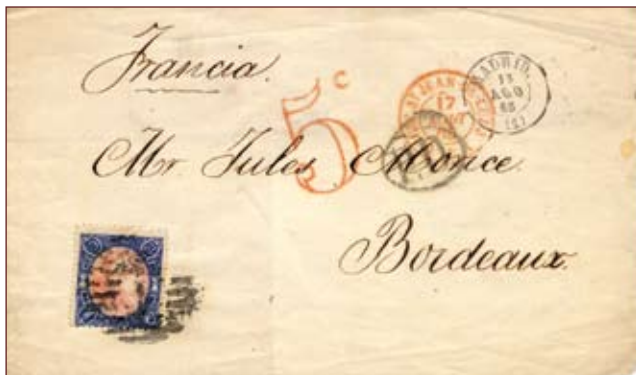 Francia.
5 c
MADRID.
13
AGO
65
(2)
17
Mr Jules Monce.
Bordeaux.